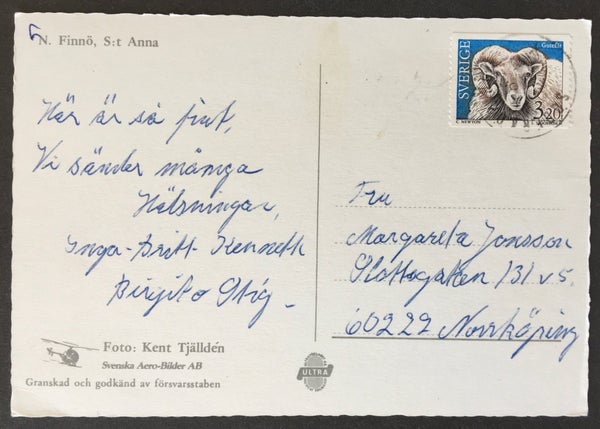 N. Finnö, S:t Anna
Här är så fint,
Vi sänder många
Hälsningar,
Inga-Britt Kenneth
Birgit o Stig
Foto: Kent Tjälldén
Svenska Aero-Bilder AB
Granskad och godkänd av försvarsstaben
ULTRA
SVERIGE
Gutefår
3.20
C. NEWTON
Fru
Margareta Jonsson
Slottsgatan 131 v 5.
60222 Norrköping